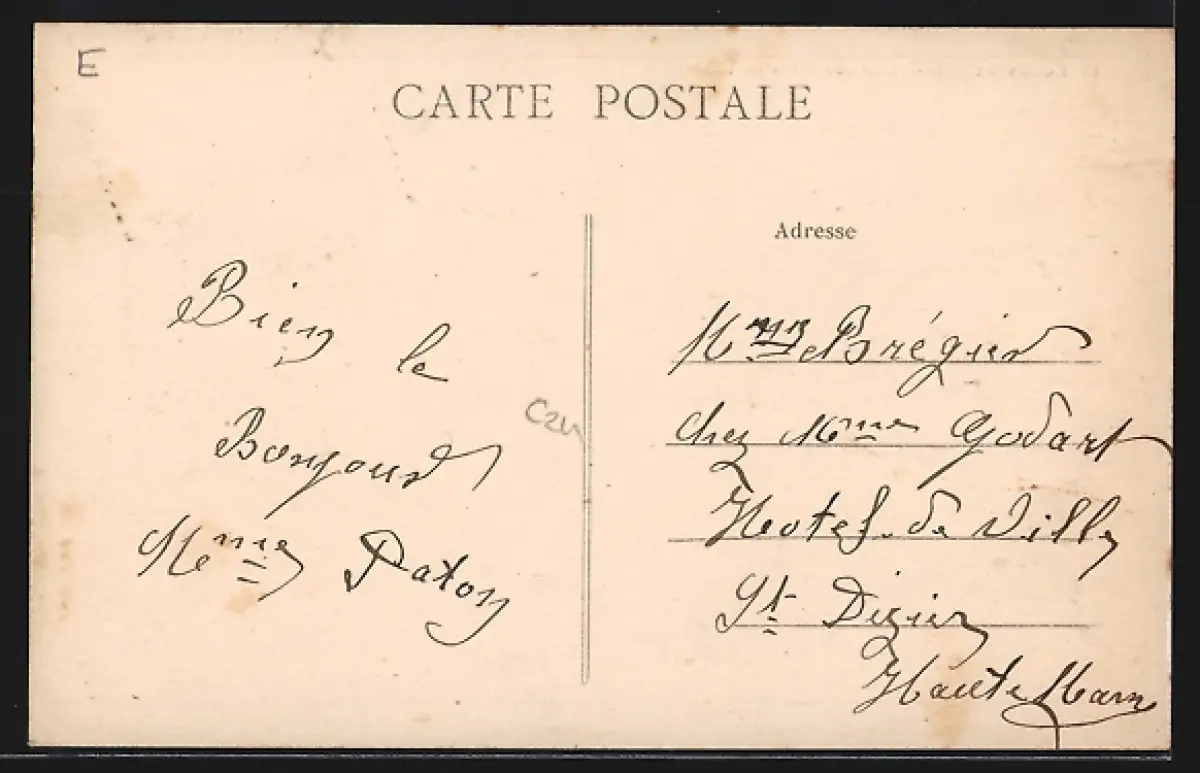 E
CARTE POSTALE
Adresse
Bien le
Bonjour
Mme Paton
Mme Brégier
chez Mme Godart
Hotel de Ville
St Dizier
Haute Marne